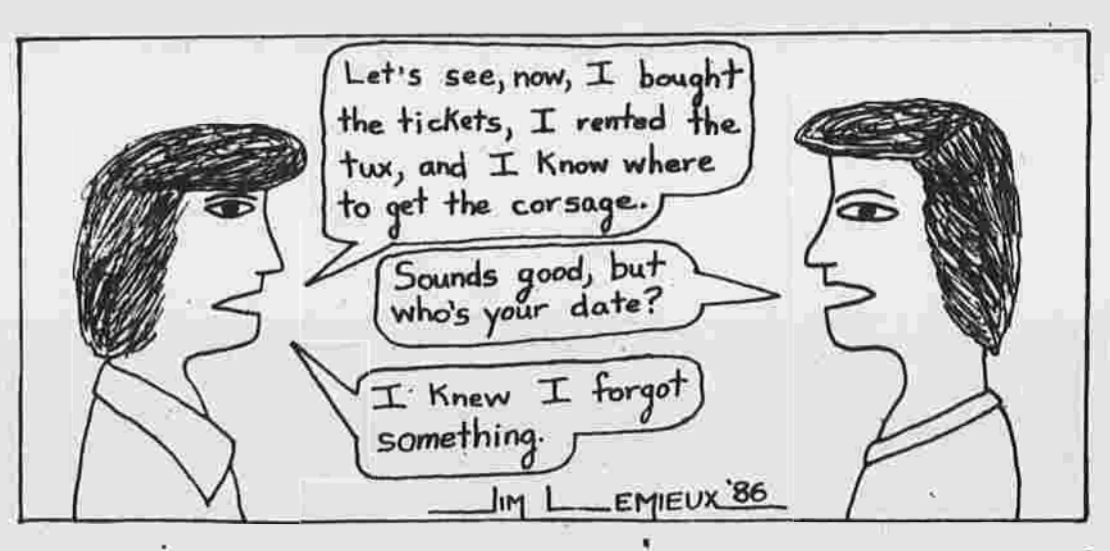 Let's see, now, I bought
the tickets, I rented the
tux, and I Know where
to get the corsage.
Sounds good, but
who's your date?
I Knew I forgot
something.
JIM LEMIEUX '86